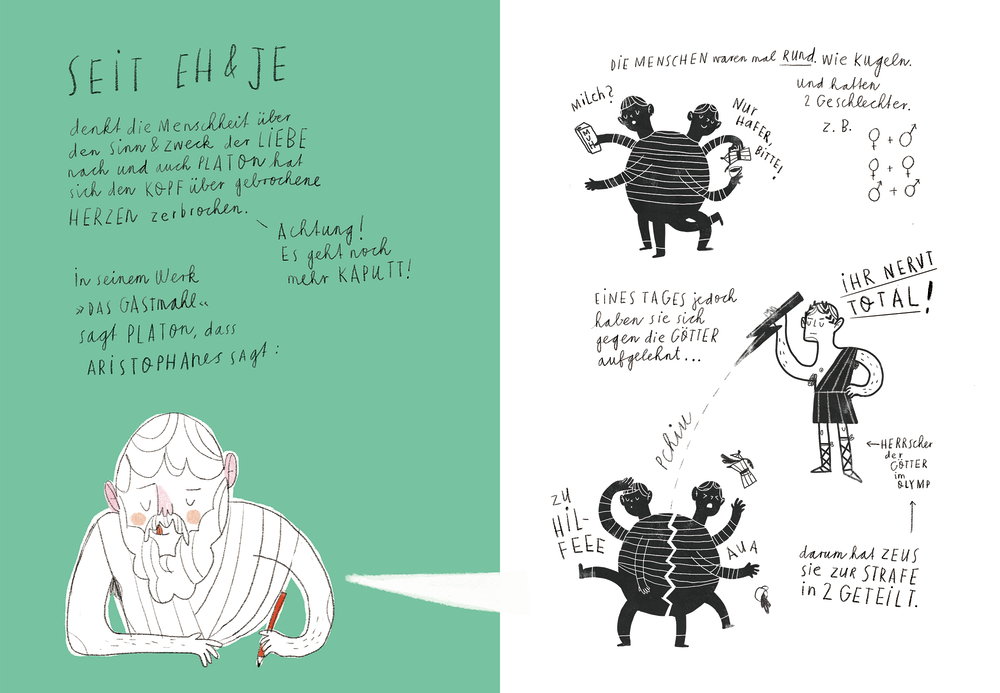 SEIT EH & JE
denkt die Menschheit über
den Sinn & Zweck der LIEBE
nach und auch PLATON hat
sich den KOPF über gebrochene
HERZEN zerbrochen.
Achtung!
Es geht noch
mehr KAPUTT!
In seinem Werk
»DAS GASTMAHL«
sagt PLATON, dass
ARISTOPHANES sagt:
DIE MENSCHEN waren mal RUND. Wie Kugeln.
Und hatten
2 Geschlechter.
z. B.
♀ + ♂
♀ + ♀
♂ + ♂
MILCH?
MUH
NUR
HAFER,
BITTE!
EINES TAGES jedoch
haben sie sich
gegen die GÖTTER
aufgelehnt...
IHR NERVT
TOTAL!
PCHIU
← HERRscher
der
GÖTTER
im
OLYMP
ZU
HIL-
FEEE
AUA
darum hat ZEUS
sie ZUR STRAFE
in 2 GETEILT.